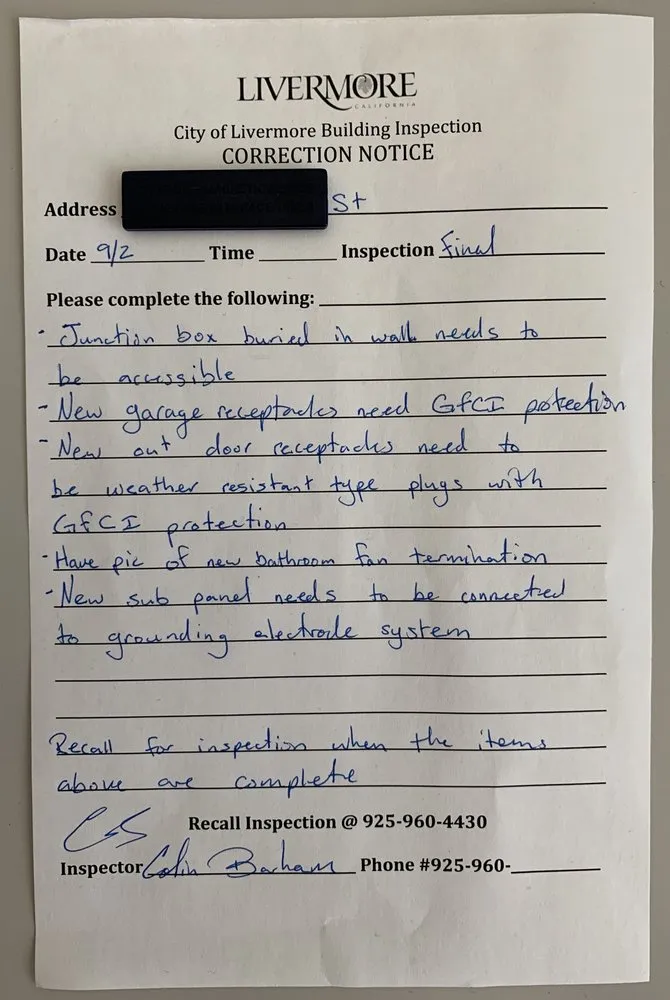 LIVERMORE
CALIFORNIA
City of Livermore Building Inspection
CORRECTION NOTICE
Address St
Date 9/2 Time Inspection Final
Please complete the following:
- Junction box buried in wall needs to
be accessible
- New garage receptacles need GFCI protection
- New out door receptacles need to
be weather resistant type plugs with
GFCI protection
- Have pic of new bathroom fan termination
- New sub panel needs to be connected
to grounding electrode system
Recall for inspection when the items
above are complete
Recall Inspection @ 925-960-4430
Inspector Colin Barham Phone #925-960-